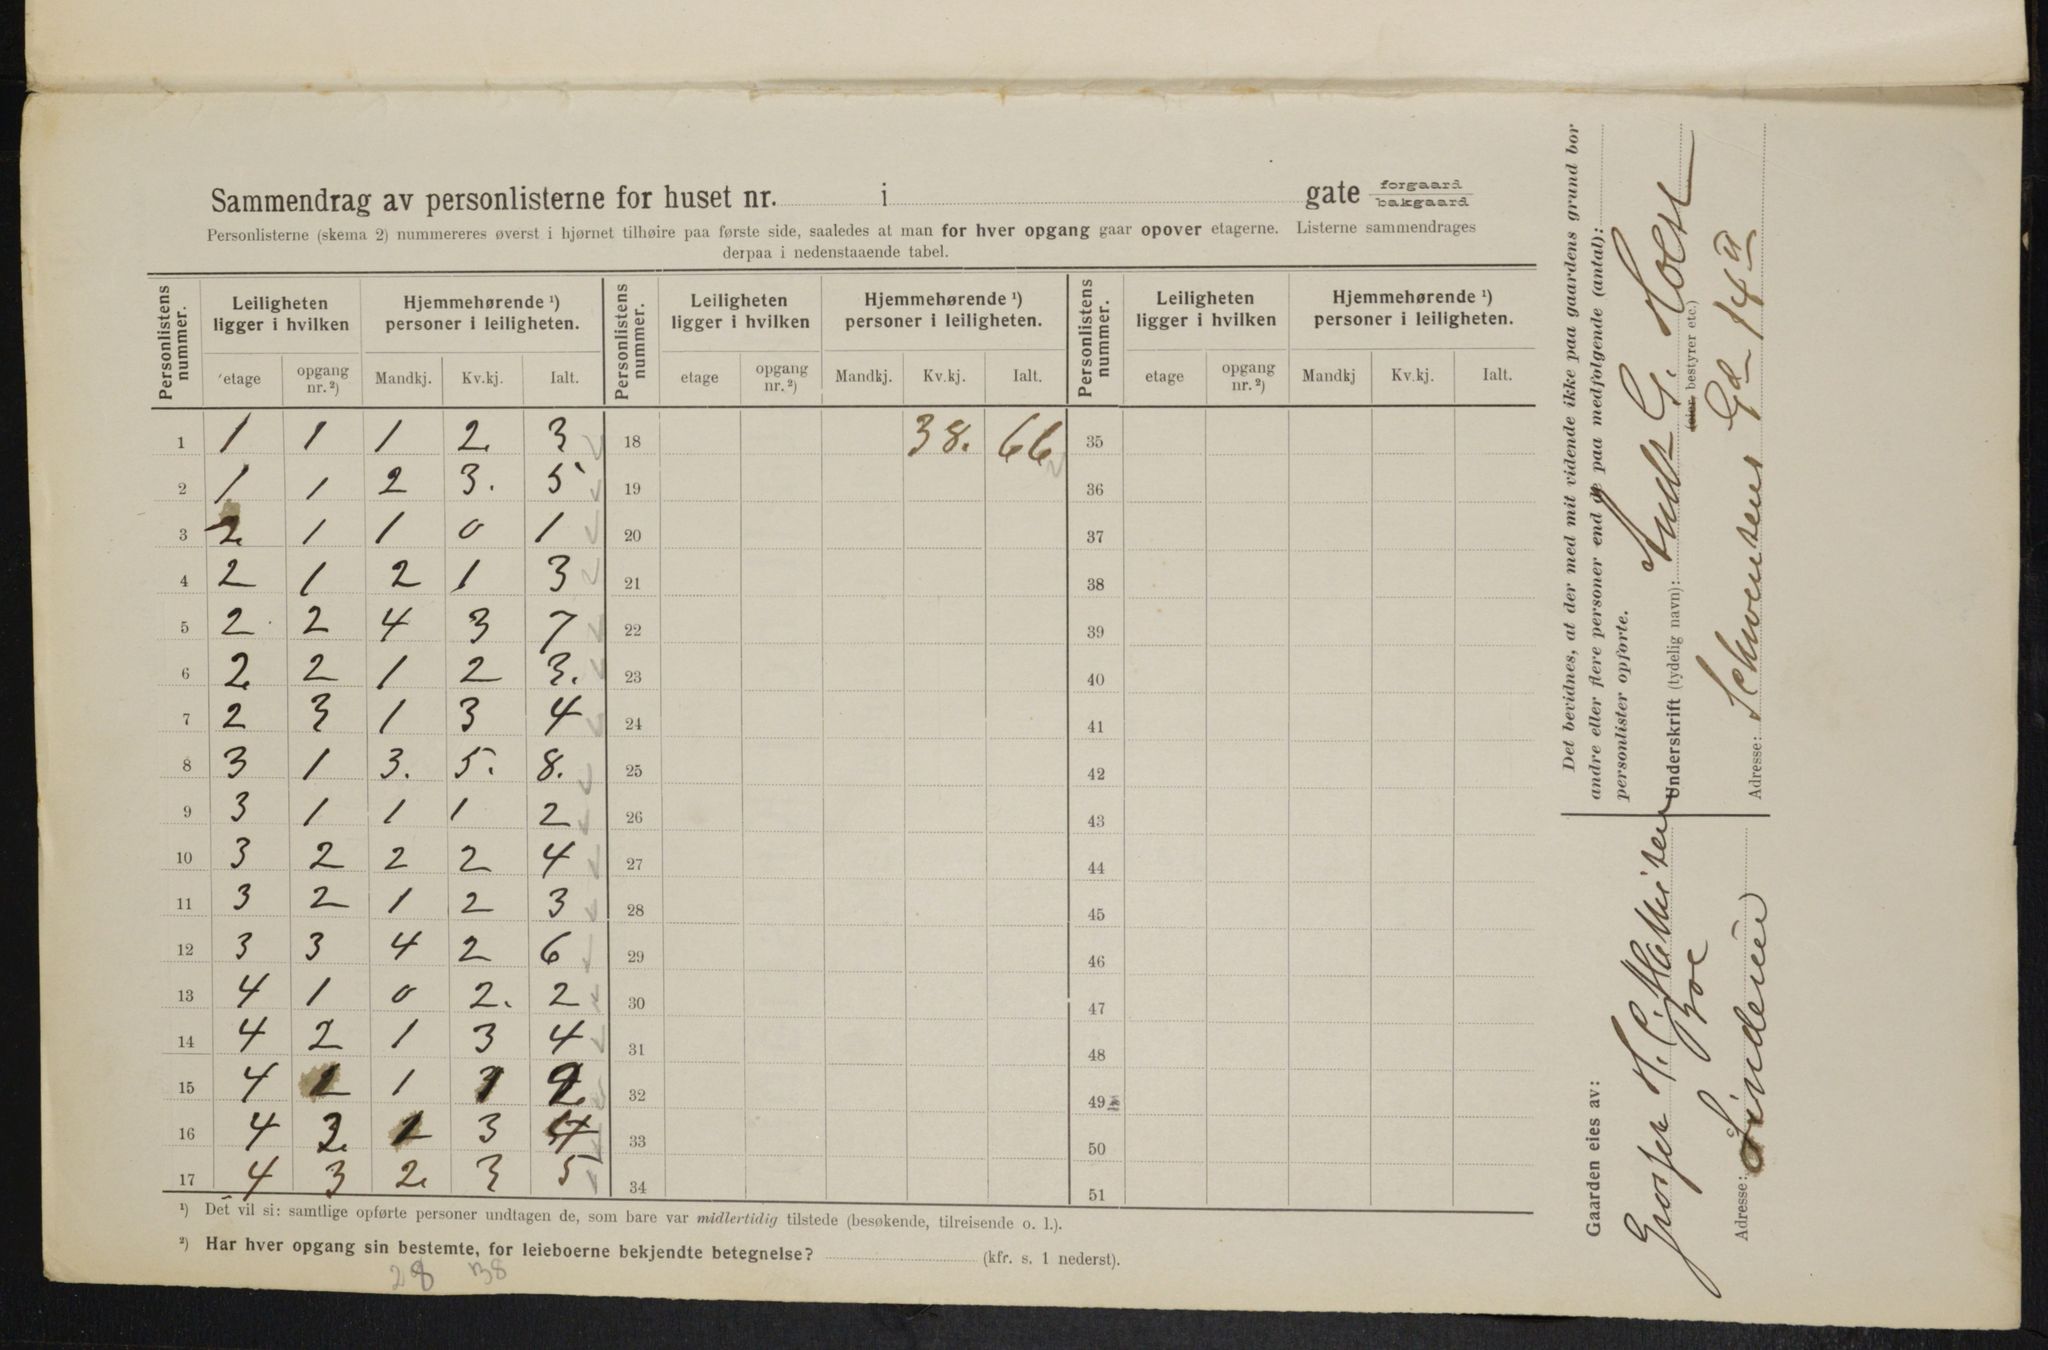 Sammendrag av personlisterne for huset nr. i gate forgaard bakgaard
Personlisterne (skema 2) nummereres øverst i hjørnet tilhøire paa første side, saaledes at man for hver opgang gaar opover etagerne. Listerne sammendrages
derpaa i nedenstaaende tabel.
Personlistens nummer. Leiligheten ligger i hvilken Hjemmehørende ¹) personer i leiligheten. Personlistens nummer. Leiligheten ligger i hvilken Hjemmehørende ¹) personer i leiligheten. Personlistens nummer. Leiligheten ligger i hvilken Hjemmehørende ¹) personer i leiligheten.
etage opgang nr. ²) Mandkj. Kv.kj. Ialt. etage opgang nr. ²) Mandkj. Kv.kj. Ialt. etage opgang nr. ²) Mandkj Kv.kj. Ialt.
1 1 1 1 2. 3 18 38. 66 35
2 1 1 2 3. 5 19 36
3 2 1 1 0 1 20 37
4 2 1 2 1 3 21 38
5 2 2 4 3 7 22 39
6 2 2 1 2 3. 23 40
7 2 3 1 3 4 24 41
8 3 1 3. 5. 8. 25 42
9 3 1 1 1 2 26 43
10 3 2 2 2 4 27 44
11 3 2 1 2 3 28 45
12 3 3 4 2 6 29 46
13 4 1 0 2. 2 30 47
14 4 2 1 3 4 31 48
15 4 2 1 1 2 32 49
16 4 3 1 3 4 33 50
17 4 3 2. 3 5 34 51
¹) Det vil si: samtlige opførte personer undtagen de, som bare var midlertidig tilstede (besøkende, tilreisende o. l.).
²) Har hver opgang sin bestemte, for leieboerne bekjendte betegnelse? (kfr. s. 1 nederst).
28 38
Det bevidnes, at der med mit vidende ikke paa gaardens grund bor
andre eller flere personer end de paa medfølgende (antal):
personlister opførte.
Underskrift (tydelig navn): G. Holst
(eier, bestyrer etc.)
Adresse: Schwensens Gd 14 II
Gaarden eies av:
Grosser H. C. Mathisen
Boe
Adresse: Lindeniu